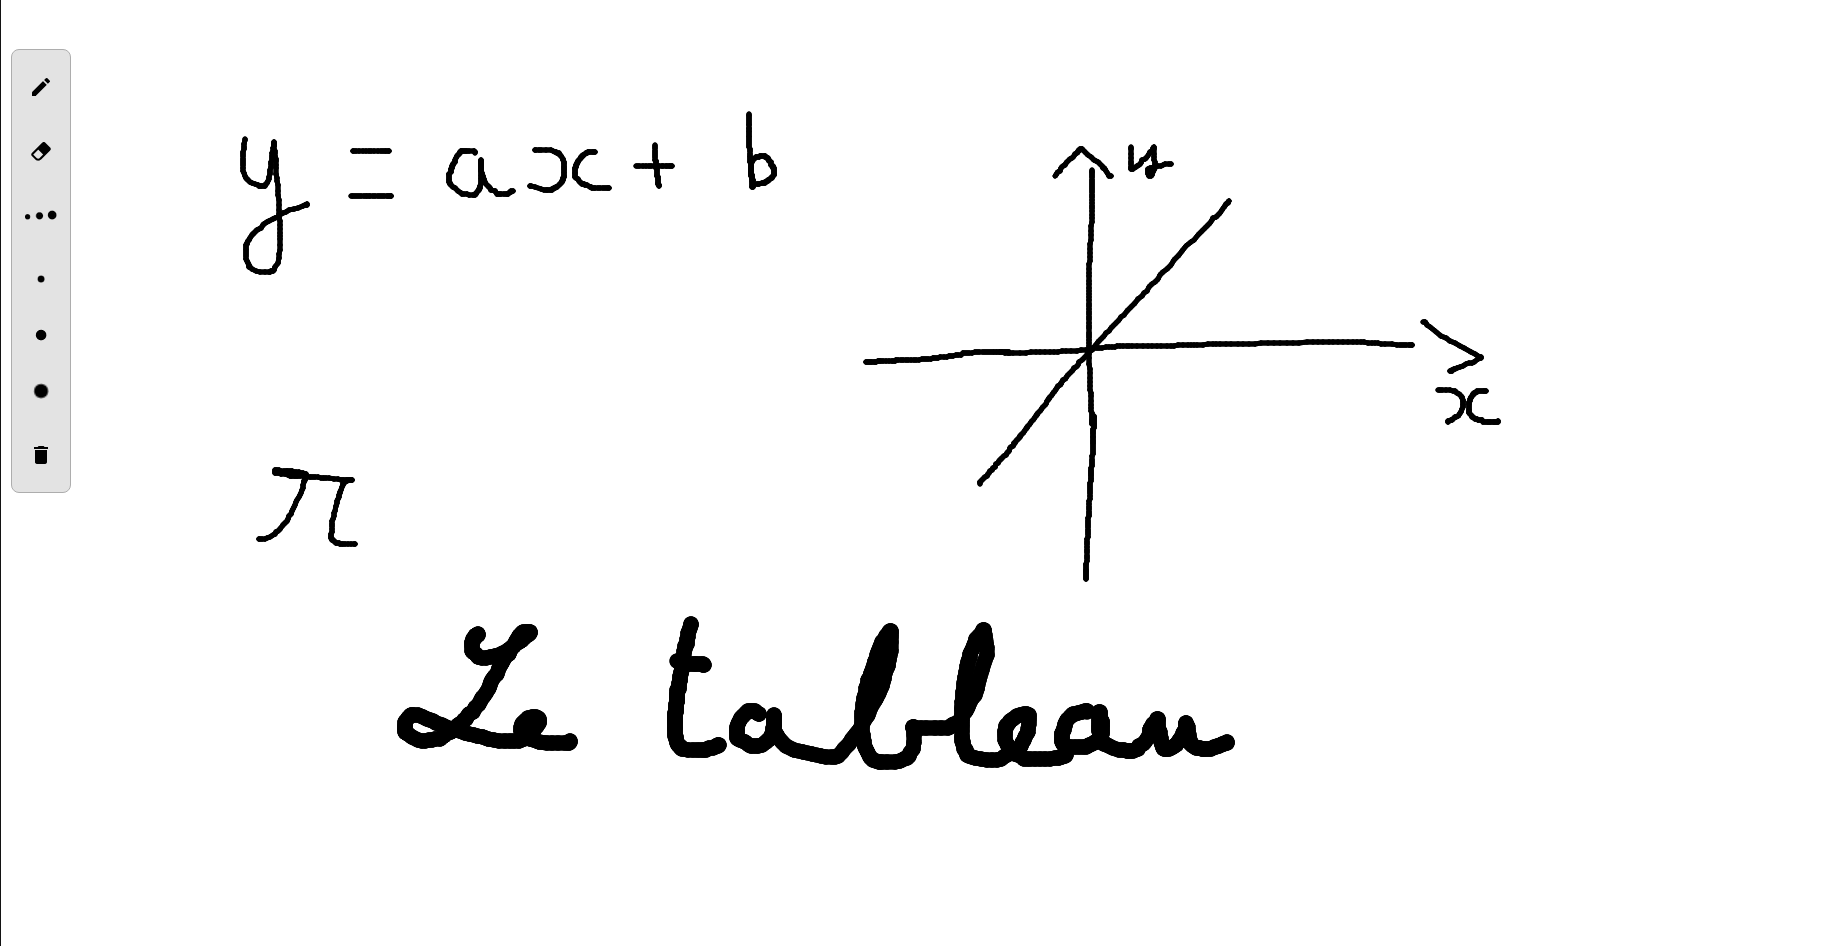 y = ax + b
y
x
π
Le tableau